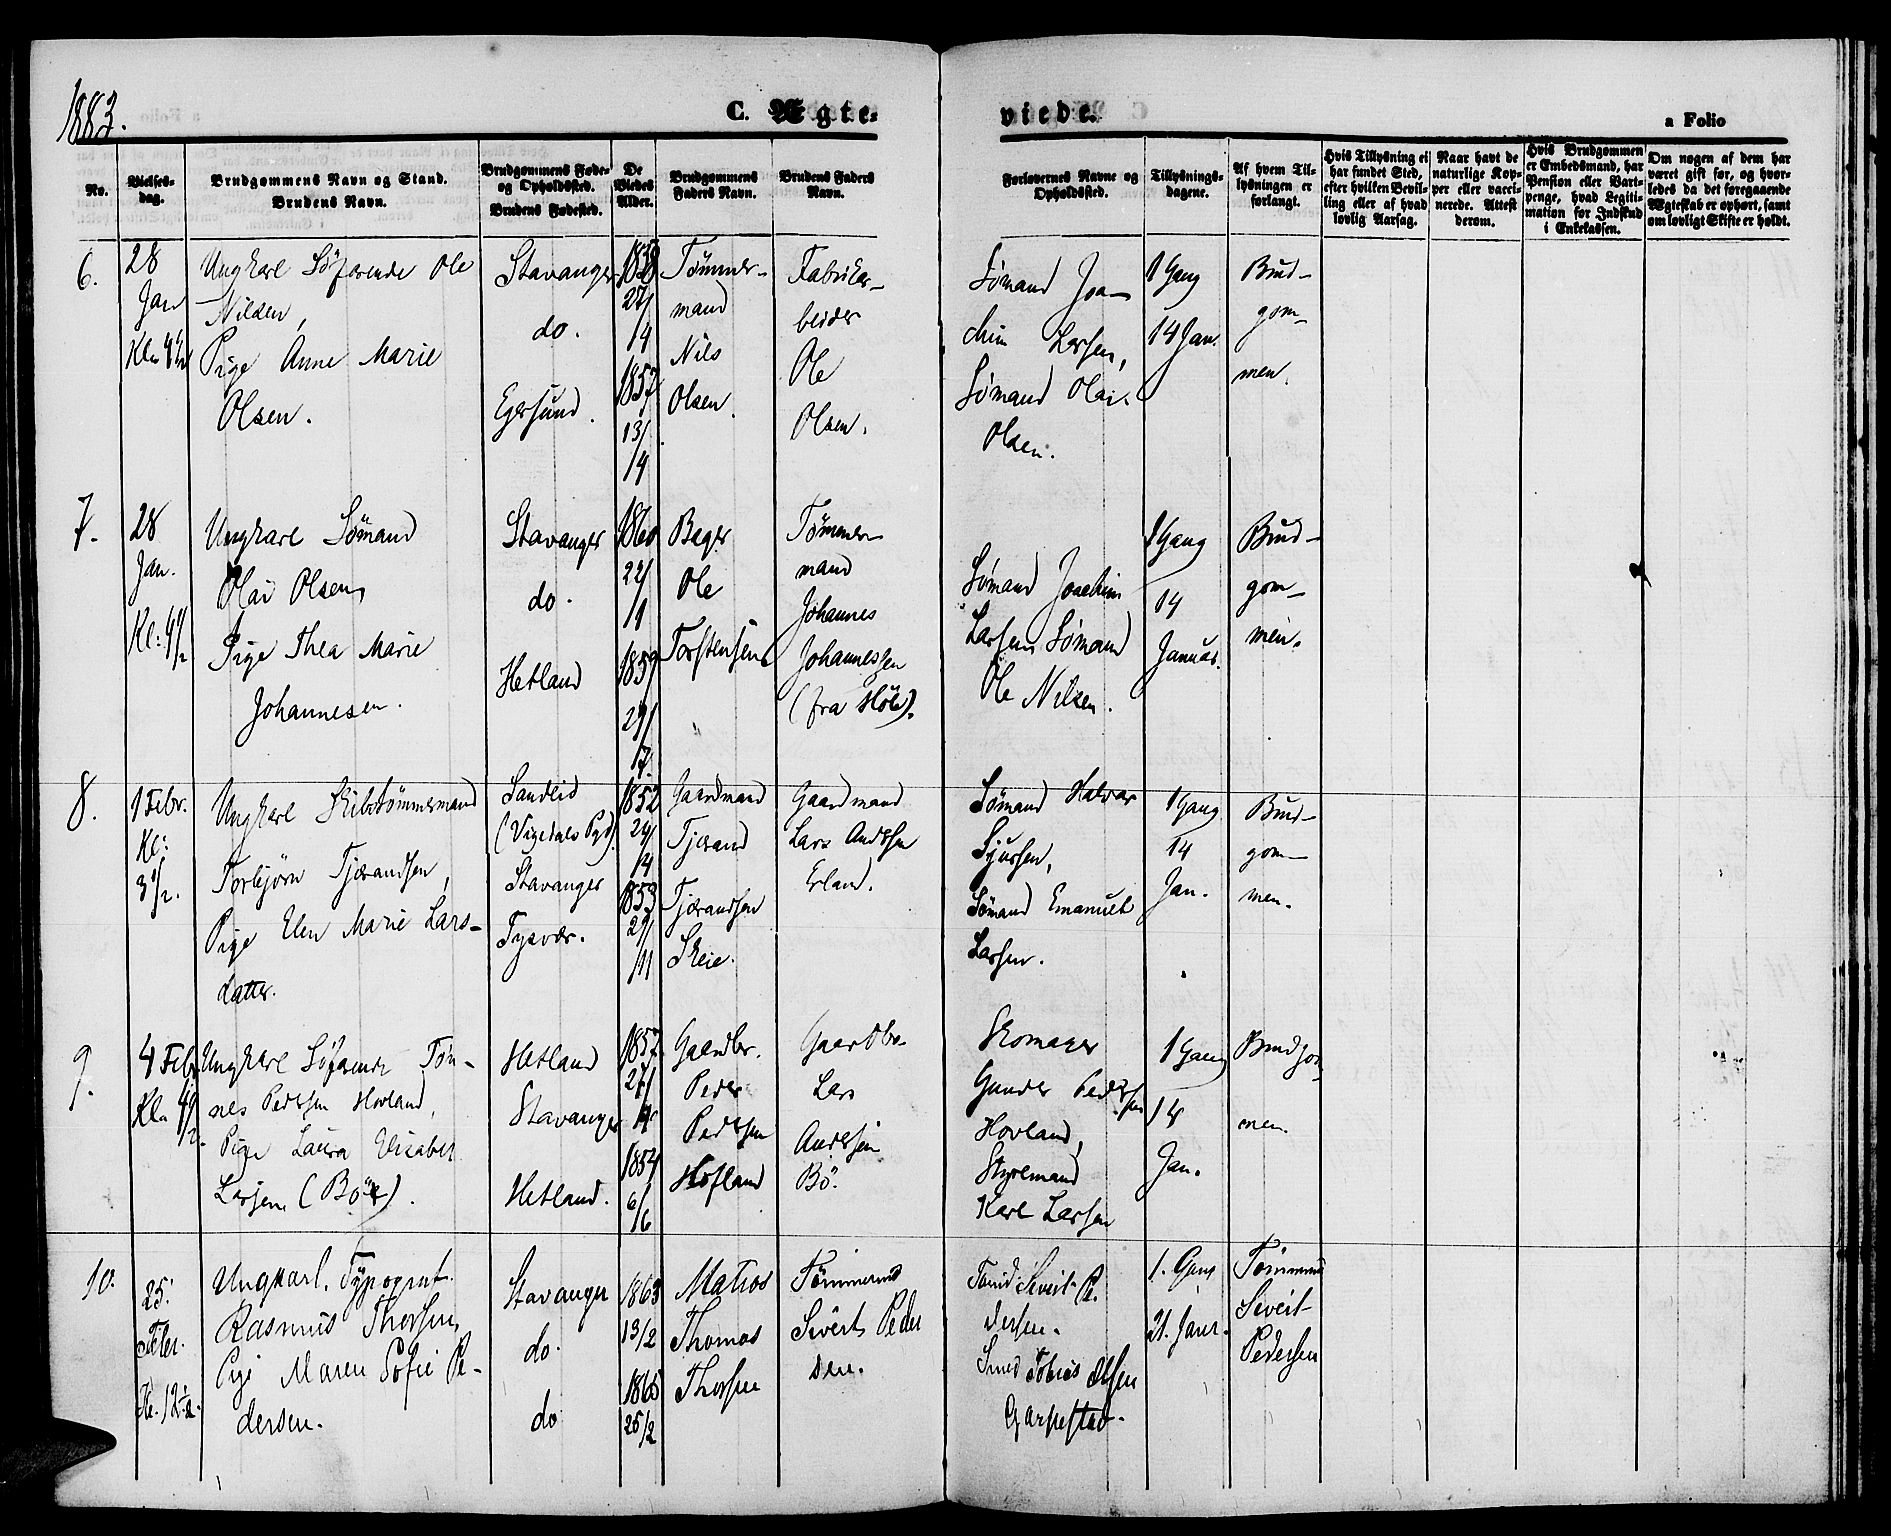 1883.
C. Ægte-
viede.
a Folio
No.
Vielses-
dag.
Brudgommens Navn og Stand.
Brudens Navn.
Brudgommens Føde-
og Opholdssted.
Brudens Fødested.
De
Viedes
Alder.
Brudgommens
Faders Navn.
Brudens Faders
Navn.
Forlovernes Navne og
Opholdssted.
Tillysnings-
dagene.
Af hvem Til-
lysningen er
forlangt.
Hvis Tillysning ei
har fundet Sted,
efter hvilken Bevil-
ling eller af hvad
lovlig Aarsag.
Naar havt de
naturlige Kop-
per eller vacci-
nerede. Attest
derom.
Hvis Brudgommen
er Embedsmand, har
Pension eller Vart-
penge, hvad Legiti-
mation for Indskud
i Enkekassen.
Om nogen af dem har
været gift før, og hvor-
ledes da det foregaaende
Ægteskab er ophørt, samt
om lovligt Skifte er holdt.
6.
28
Jan
Kl. 4 1/2
Ungkarl Søfarende Ole
Nilsen,
Pige Anne Marie
Olsen.
Stavanger
do.
Egersund.
1858
27/
/4
1857
13/
/4
Tømmer-
mand
Nils
Olsen.
Fabrikar-
beider
Ole
Olsen.
Sømand Joa-
chim Larsen,
Sømand Olai
Olsen.
1 Gang
14 Jan.
Brud-
gom-
men.
7.
28
Jan.
Kl: 4 1/2
Ungkarl Sømand
Olai Olsen,
Pige Thea Marie
Johannesen.
Stavanger
do.
Hetland
1860
22/
/1
1859
29/
/7.
Bager
Ole
Torstensen
Tømmer-
mand
Johannes
Johannessen
(fra Høle).
Sømand Joachim
Larsen, Sømand
Ole Nilsen.
1 Gang
14
Januar.
Brud-
gom-
men.
8.
1 Febr.
Kl:
3 1/2.
Ungkarl Skibstømmermand
Torbjørn Tjærandsen,
Pige Elen Marie Lars-
datter.
Sandeid
(Vigedals Pgd).
Stavanger
Tysvær.
1852
24/
/4
1853
29/
/11
Gaardmand
Tjærand
Tjærandsen
Skeie.
Gaardmand
Lars Andersen
Erland.
Sømand Halvar
Sjursen,
Sømand Emanuel
Larsen.
1 Gang
14
Jan.
Brud-
gom-
men.
9.
4 Febr.
Kl. 4 1/2.
Ungkarl Søfarende Tøn-
nes Pedersen Hovland,
Pige Laura Elisabet
Larsen (Bø).
Hetland
Stavanger
Hetland.
1857
27/
1854
6/
/6
Gaardbr.
Peder
Pedersen
Hofland
Gaardbr.
Lars
Andersen
Bø.
Skomager
Gunder Pedersen
Hovland,
Styrmand
Karl Larsen
1 Gang
14
Jan.
Brudgom-
men.
10.
25.
Febr.
Kl. 12 1/2.
Ungkarl. Typograf.
Rasmus Thorsen,
Pige Maren Sofie Pe-
dersen.
Stavanger
do.
do
1863
13/2
1865
25/2
Matros
Thomas
Thorsen
Tømmermd
Sivert Peder
sen.
Tømd: Sivert Pe-
dersen.
Smed Tobias Olsen
Garpestad.
1. Gang
21. Janr.
Tømmermd
Sivert
Pedersen